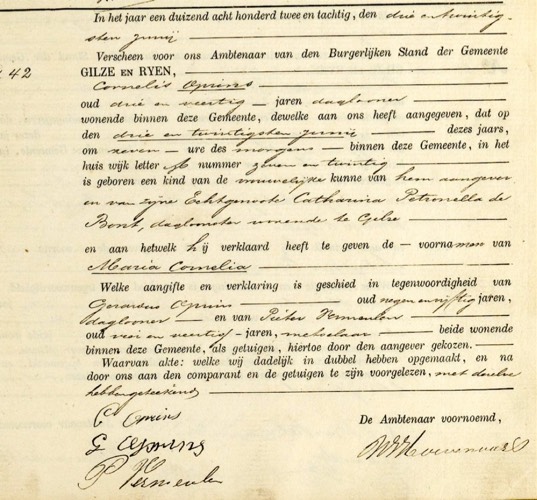 In het jaar een duizend acht honderd twee en tachtig, den drie en twintig-
sten Junij
Verscheen voor ons Ambtenaar van den Burgerlijken Stand der Gemeente
42
GILZE EN RYEN,
Cornelis Oprins
oud drie en veertig jaren daglooner
wonende binnen deze Gemeente, dewelke aan ons heeft aangegeven, dat op
den drie en twintigsten Junij dezes jaars,
om zeven ure des morgens binnen deze Gemeente, in het
huis wijk letter A nummer zeven en twintig
is geboren een kind van de vrouwelijke kunne van hem aangever
en van zijne Echtgenoote Catharina Petronella de
Bont, daglooster wonende te Gilze
en aan hetwelk hij verklaard heeft te geven de voornamen van
Maria Cornelia
Welke aangifte en verklaring is geschied in tegenwoordigheid van
Gerardus Oprins oud negen en vijftig jaren,
daglooner en van Pieter Vermeulen
oud en veertig jaren, metselaar beide wonende
binnen deze Gemeente, als getuigen, hiertoe door den aangever gekozen.
Waarvan akte: welke wij dadelijk in dubbel hebben opgemaakt, en na
door ons aan den comparant en de getuigen te zijn voorgelezen, met dezelve
hebben geteekend
C Oprins
De Ambtenaar voornoemd,
G Oprins
P Vermeulen